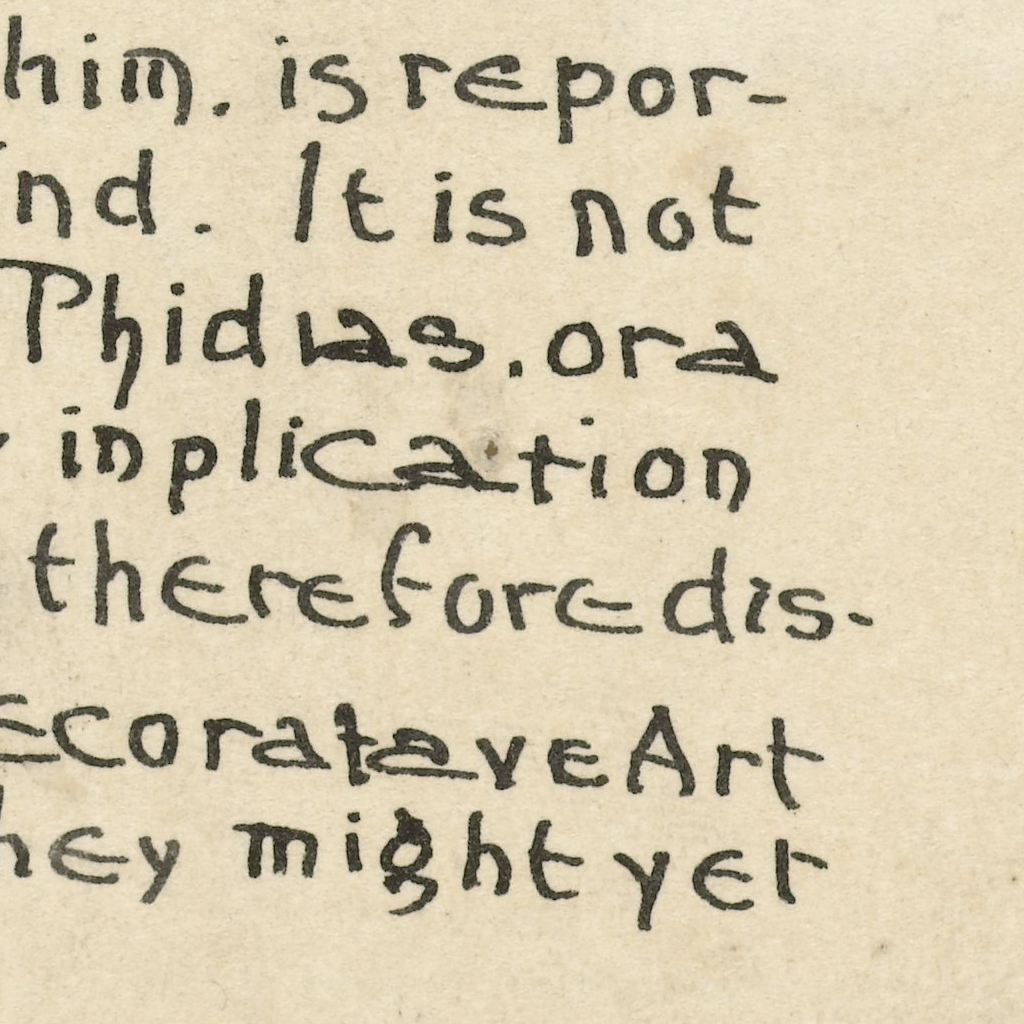 him. is repor-
nd. It is not
Phidias. or a
inplication
therefore dis-
ecoratave Art
hey might yet